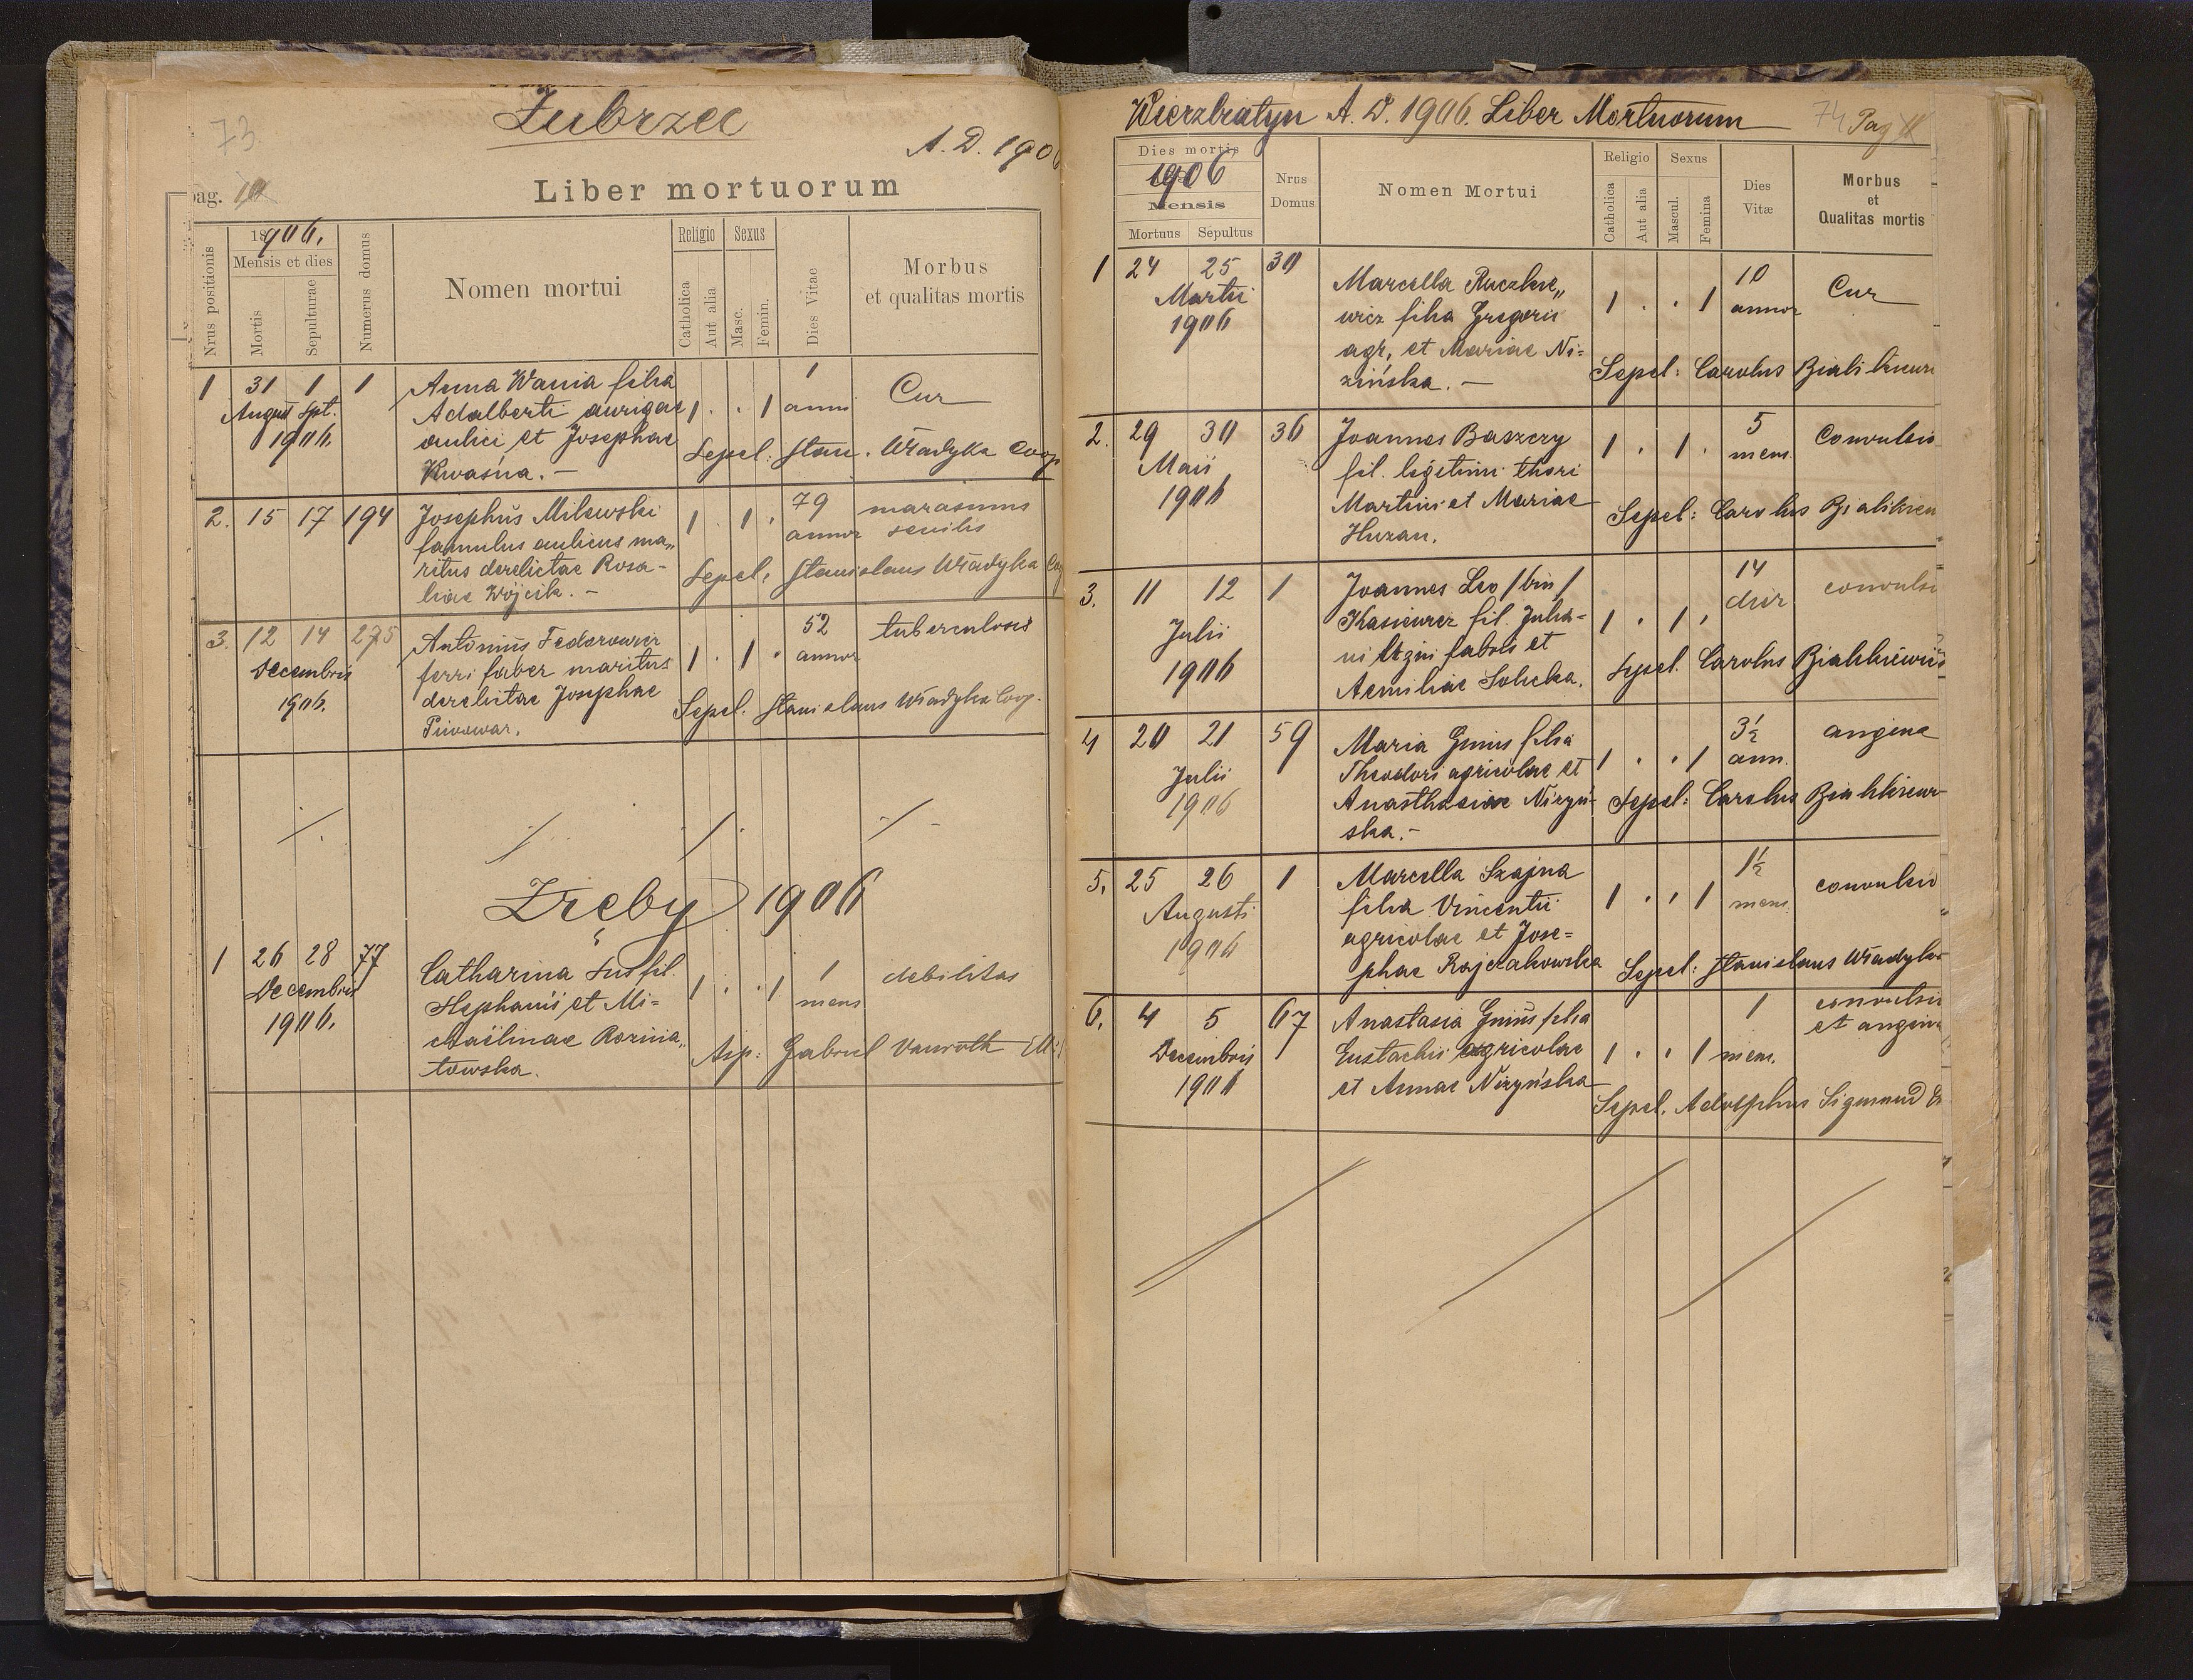 73
Zubrzec
A. D. 1906
pag. 10
Liber mortuorum
Nrus positionis
1906.
Mensis et dies
Mortis
Sepulturae
Numerus domus
Nomen mortui
Religio
Catholica
Aut alia
Sexus
Masc.
Femin.
Dies Vitae
Morbus
et qualitas mortis
1 31 1 1 Anna Wania filia 1
August Spt. Adalberti aurigae 1 . . 1 anni Cur
1906. aulici et Josephae
Kwaśna. — Sepel: Stan. Władyka Coop
2. 15 17 194 Josephus Milewski 1 . 1 . 79 marasmus
famulus aulicus ma„ annor senilis
ritus derelictae Rosa-
liae Wojcik. — Sepel: Stanislaus Władyka Coop
3. 12 14 275 Antonius Fedorowicz 52 tuberculosis
Decembris ferri faber maritus 1 . 1 . annor
1906. derelictae Josephae
Piwowar. Sepel. Stanislaus Władyka Coop.
Zręby 1906
1 26 28 77 Catharina Lus fil. 1
Decembris Stephani et Mi= 1 . . 1 mens debilitas
1906. chaëlinae
towska. Asp: Gabriel
Wierzbiatyn A. D. 1906. Liber Mortuorum 74 Pag 11
Dies mortis
1906
Mensis
Mortuus
Sepultus
Nrus
Domus
Nomen Mortui
Religio
Catholica
Aut alia
Sexus
Mascul.
Femina
Dies
Vitæ
Morbus
et
Qualitas mortis
1 24 25 30 Marcella Ruczkie„ 10
Martii wicz filia Gregorii 1 . . 1 annor Cur
1906 agr. et Mariae Ni=
zińska. — Sepel: Carolus
2. 29 30 36 Joannes Baszczy 5
Maii fil. legitimi thori 1 . 1 . mens. Convulsio
1906 Martini et Mariae
Huzan. Sepel: Carolus
3. 11 12 1 Joannes Leo /bin/ 14 convulsi
Julii Kasiewicz fil. Julia= 1 . 1 . dier.
1906 ni fabri et
Aemiliae Solicka. Sepel. Carolus
4 20 21 59 Maria Gnius filia 3½ angina
Julii Theodori agricolae et 1 . . 1 ann.
1906 Anasthasiae Nizyń-
ska.- Sepel: Carolus
5. 25 26 1 Marcella Szajna 1½
Augusti filia Vincentii 1 . . 1 mens. convulsio
1906 agricolae et Jose=
phae Rajczakowska Sepel: Stanislaus Władyka
6. 4 5 67 Anastasia Gnius filia 1 convulsio
Decembris Eustachii agricolae 1 . . 1 mens. et angina
1906 et Annae Nizyńska
Sepel. Adolphus Sigmund